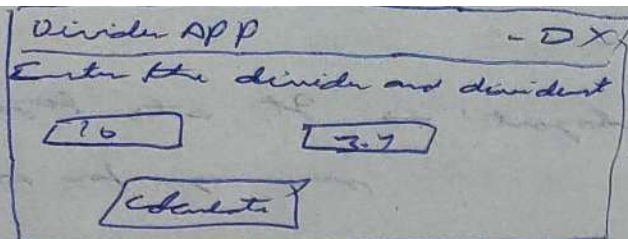 Divider APP - D X
Enter the divider and dividend
10 3.7
Calculate